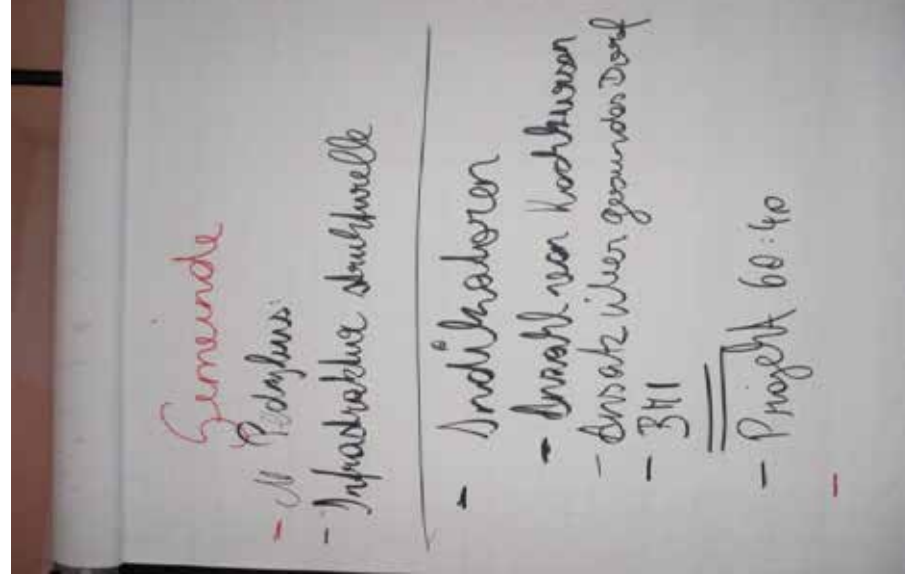 Gemeinde
-
- Infrastruktur strukturelle
- Indikatoren
- Anzahl von Kochkursen
- Ansatz über gesundes Dorf
- BMI
- Projekt 60:40
-